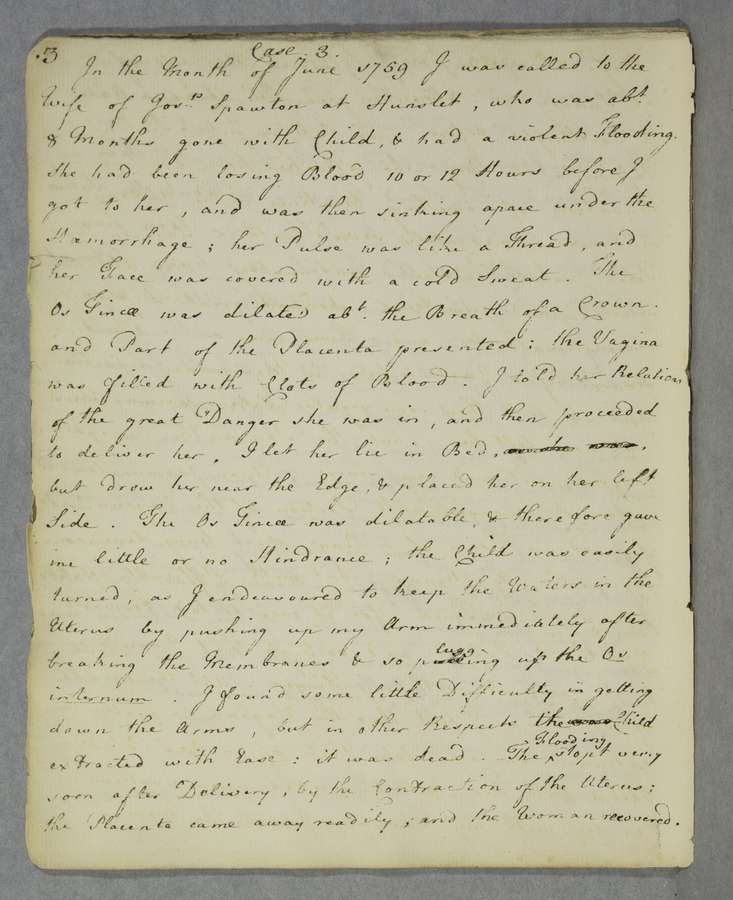 .3 Case 3.
In the Month of June 1759 I was called to the
Wife of Jos.ᵖ Spawton at Hunslet, who was ab.ᵗ
8 Months gone with Child, & had a violent Flooding.
She had been losing Blood 10 or 12 Hours before I
got to her, and was then sinking apace under the
Hæmorrhage; her Pulse was like a Thread, and
her Face was covered with a cold Sweat. The
Os Tincæ was dilated ab.ᵗ the Breath of a Crown.
and Part of the Placenta presented: the Vagina
was filled with Clots of Blood. I told her Relations
of the great Danger she was in, and then proceeded
to deliver her. I let her lie in Bed, as she was.
but drew her near the Edge, & placed her on her left
Side. The Os Tincæ was dilatable, & therefore gave
me little or no Hindrance; the Child was easily
turned, as I endeavoured to keep the Waters in the
Uterus by pushing up my Arm immediately after
breaking the Membranes & so plugging up the Os
internum. I found some little Difficulty in getting
down the Arms, but in other Respects the Child
extracted with Ease: it was dead. The Flooding stopt very
soon after Delivery, by the Contraction of the Uterus;
the Placenta came away readily; and the Woman recovered.